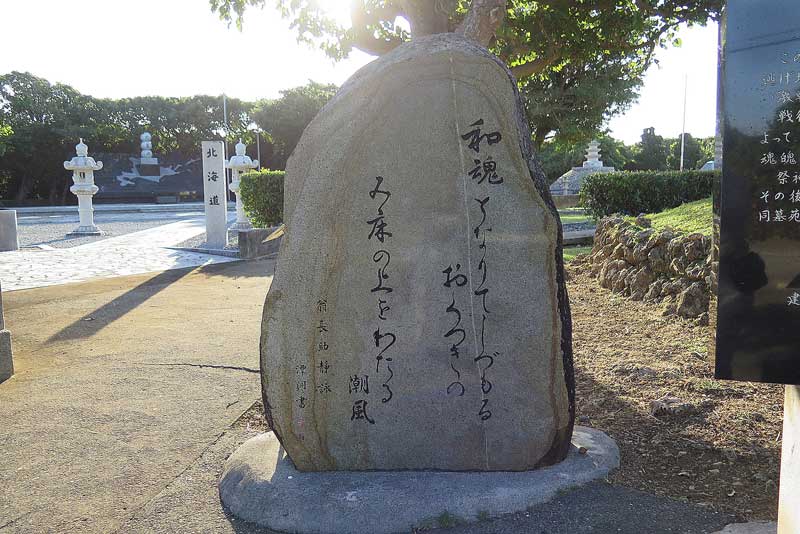 和魂となりてしづもる
おくつきの
み床の上をわたる
潮風
翁長助静詠
北海道
この
逃げ
戦
よって
魂魄
祭神
その後
同墓苑
建